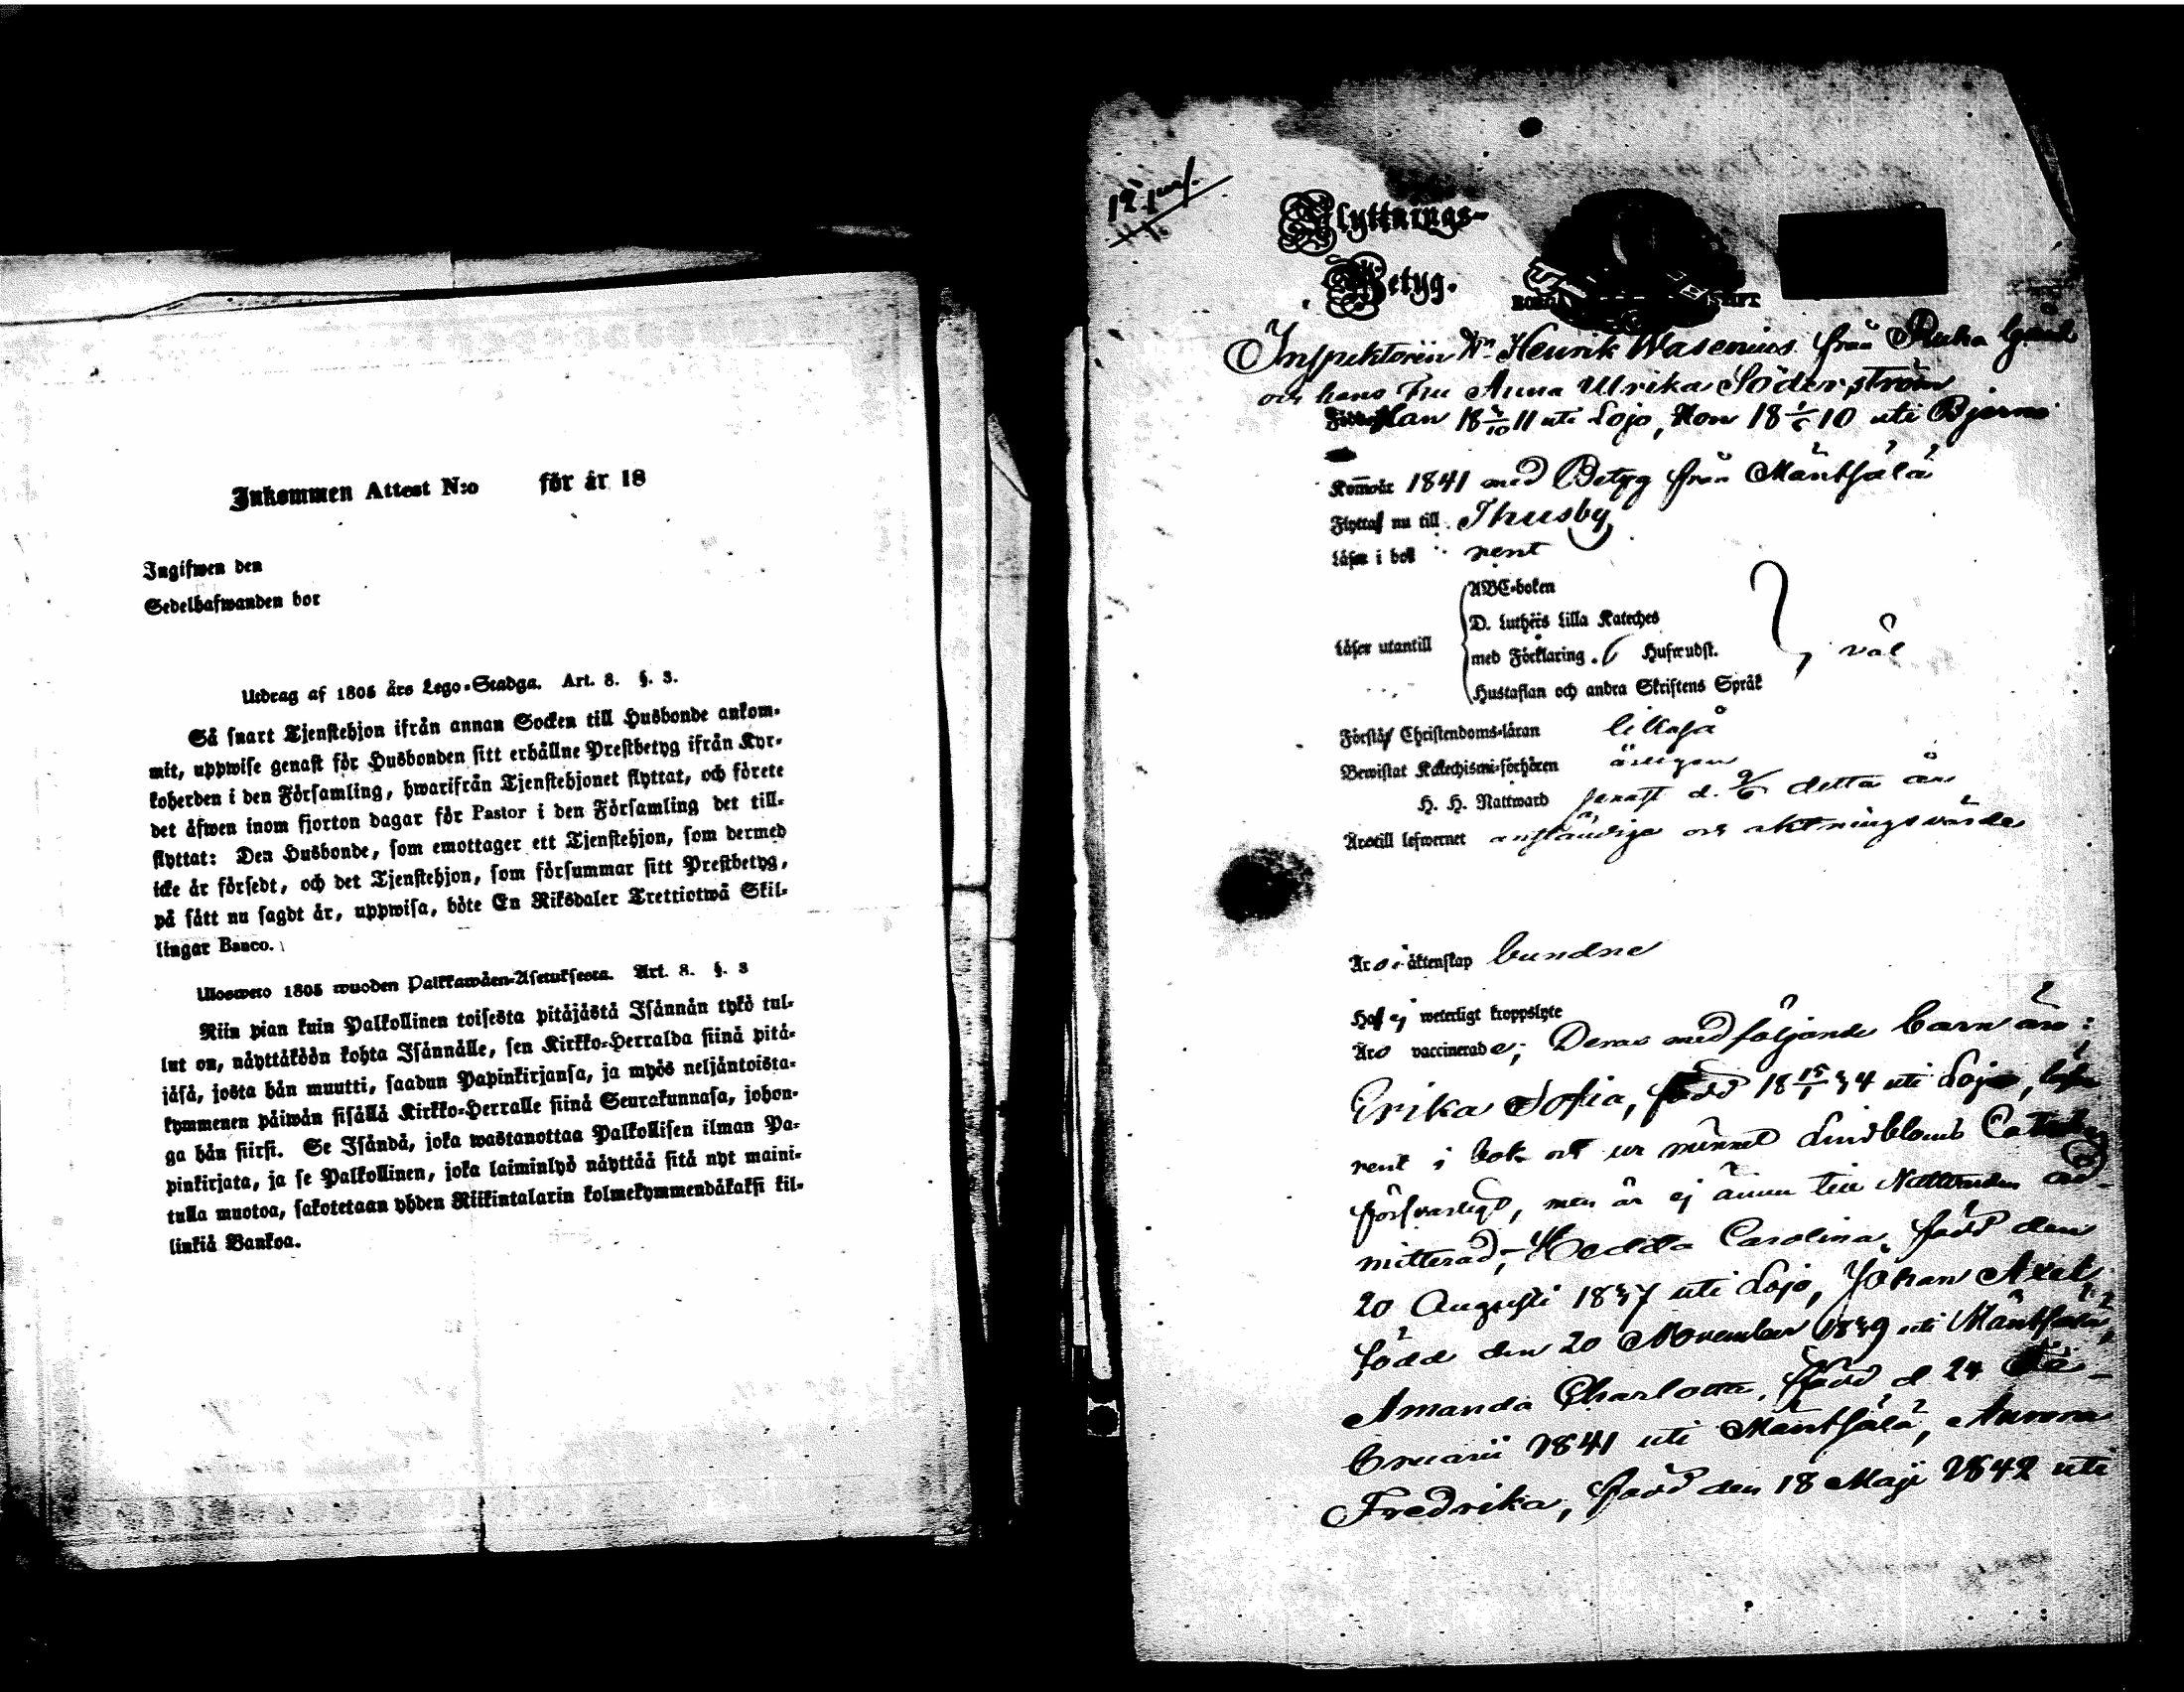 Inkommen Attest N:o för år 18
Ingifwen den
Sedelhafwanden bor
Utdrag af 1805 års Lego-Stadga. Art. 8. §. 3.
Så snart Tjenstehjon ifrån annan Socken till Husbonde ankom-
mit, uppwise genast för Husbonden sitt erhållne Prestbetyg ifrån Kyr-
koherden i den Församling, hwarifrån Tjenstehjonet flyttat, och förete
det åfwen inom fjorton dagar för Pastor i den Församling det till-
flyttat: Den Husbonde, som emottager ett Tjenstehjon, som dermed
icke är försedt, och det Tjenstehjon, som försummar sitt Prestbetyg,
på sätt nu sagdt är, uppwisa, böte En Riksdaler Trettiotwå Skil-
lingar Banco.
Ulosweto 1805 wuoden Palkkawåen-Asetuksesta. Art. 8. §. 3
Niin pian kuin Palkollinen toisesta pitäjästä Isännän tykö tul-
lut on, näyttäköön kohta Isännälle, sen Kirkko-Herralda siinä pitä-
jäsä, josta hän muutti, saadun Papinkirjansa, ja myös neljäntoista-
kymmenen päiwän sisällä Kirkko-Herralle siinä Seurakunnasa, johon-
ga hän siirsi. Se Isändä, joka wastanottaa Palkollisen ilman Pa-
pinkirjata, ja se Palkollinen, joka laiminlyö näyttää sitä nyt maini-
tulla muotoa, sakotetaan yhden Riikintalarin kolmekymmendäkaksi kil-
linkiä Bankoa.
Flyttnings-
Betyg.
BORGÅ STIFT
Inspektoren Hr Henrik Wasenius från Ruha
och hans Fru Anna Ulrika Söderström
Han 18 10 11 uti Lojo, Hon 18 10 uti Bjerno
Kom år 1841 med Betyg från Mäntsälä
Flytta nu till Thusby
Läser i bok rent
ABC-boken
D. Luthers Lilla Kateches
Läser utantill
med Förklaring. Husfrudst.
väl
Hustaflan och andra Skriftens Språk
Förstå Christendoms-läran likaså
Bewistat Katechismi-förhören årligen
H. H. Nattward senast d. 9/6 detta år
Äro till lefwernet anständige och aktningsvärde
Äro i äktenskap bundne
Haf ej weterligt kroppslyte
Äro vaccinerade; Deras medföljande barn äro:
Erika Sofia, född 18 15/1 34 uti Lojo, läser
rent i bok och ur minnet Lindbloms Catech.
försvarligt, men är ej ännu till Nattvarden ad-
mitterad; Hedda Carolina, född den
20 Augusti 1837 uti Lojo, Johan Axel,
född den 20 November 1839 uti Mäntsälä,
Amanda Charlotta, född d 24 Fe-
bruarii 1841 uti Mäntsälä, Aurora
Fredrika, född den 18 Maji 1842 uti